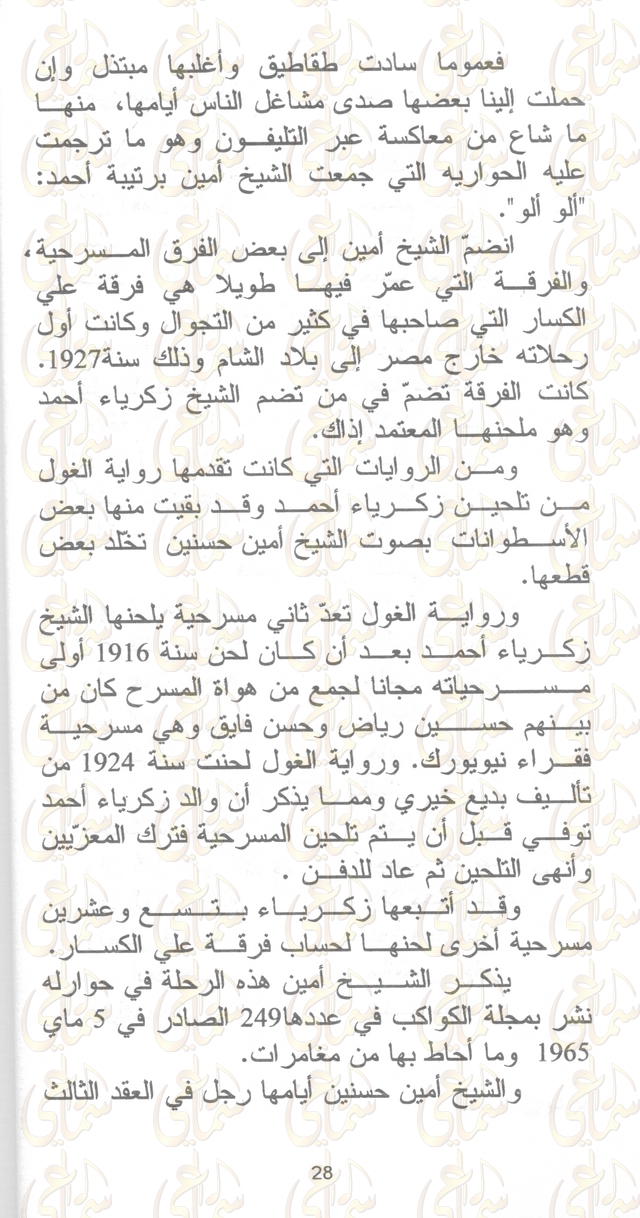 فعموما سادت طقاطيق وأغلبها مبتذل وإن
حملت إلينا بعضها صدى مشاغل الناس أيامها، منها
ما شاع من معاكسة عبر التليفون وهو ما ترجمت
عليه الحواريه التي جمعت الشيخ أمين برتيبة أحمد:
"ألو ألو".
انضمّ الشيخ أمين إلى بعض الفرق المسرحية،
والفرقة التي عمّر فيها طويلا هي فرقة علي
الكسار التي صاحبها في كثير من التجوال وكانت أول
رحلاته خارج مصر إلى بلاد الشام وذلك سنة1927.
كانت الفرقة تضمّ في من تضم الشيخ زكرياء أحمد
وهو ملحنها المعتمد إذاك.
ومن الروايات التي كانت تقدمها رواية الغول
من تلحين زكرياء أحمد وقد بقيت منها بعض
الأسطوانات بصوت الشيخ أمين حسنين تخلّد بعض
قطعها.
ورواية الغول تعدّ ثاني مسرحية يلحنها الشيخ
زكرياء أحمد بعد أن كان لحن سنة 1916 أولى
مسرحياته مجانا لجمع من هواة المسرح كان من
بينهم حسين رياض وحسن فايق وهي مسرحية
فقراء نيويورك. ورواية الغول لحنت سنة 1924 من
تأليف بديع خيري ومما يذكر أن والد زكرياء أحمد
توفي قبل أن يتم تلحين المسرحية فترك المعزّيين
وأنهى التلحين ثم عاد للدفن .
وقد أتبعها زكرياء بتسع وعشرين
مسرحية أخرى لحنها لحساب فرقة علي الكسار.
يذكر الشيخ أمين هذه الرحلة في حوارله
نشر بمجلة الكواكب في عددها249 الصادر في 5 ماي
1965 وما أحاط بها من مغامرات.
والشيخ أمين حسنين أيامها رجل في العقد الثالث
28